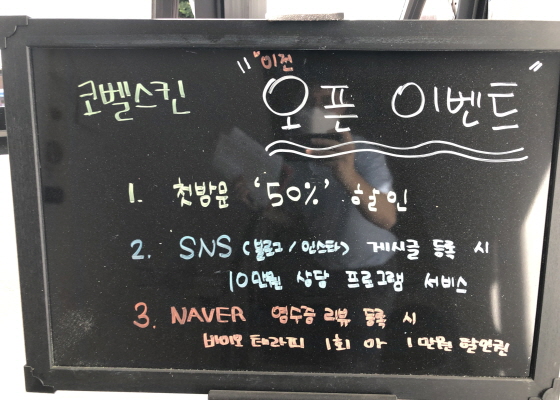 코벨스킨 "이전 오픈 이벤트"
1. 첫방문 '50%' 할인
2. SNS (블로그 / 인스타) 게시글 등록 시
10만원 상당 프로그램 서비스
3. NAVER 영수증 리뷰 등록 시
바이오 테라피 1회 or 1만원 할인권